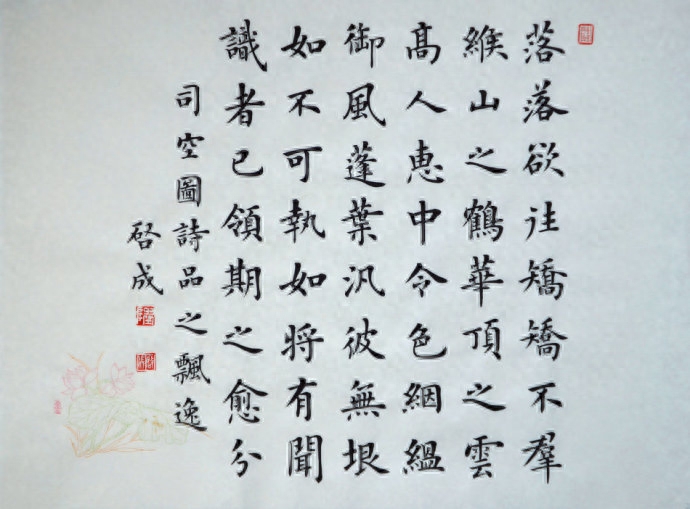 落落欲往矯矯不羣
緱山之鶴華頂之雲
髙人恵中令色絪緼
御風蓬葉汎彼無垠
如不可執如将有聞
識者已領期之愈分
司空圖詩品之飄逸
啓成